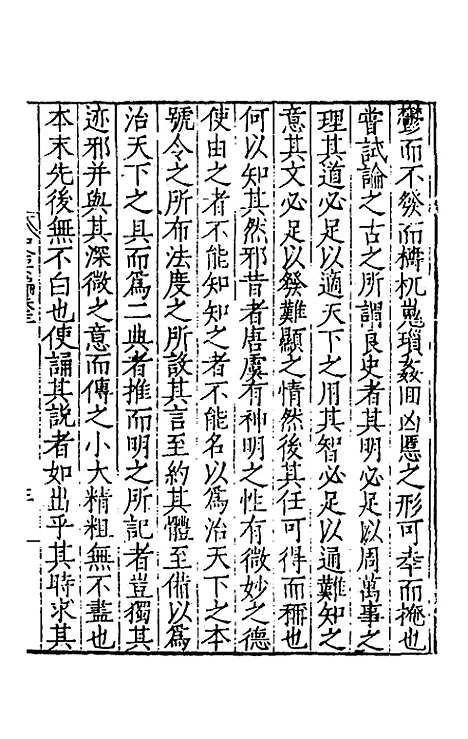 鬱而不發而檮杌嵬瑣姦回凶慝之形可幸而掩也
嘗試論之古之所謂良史者其明必足以周萬事之
理其道必足以適天下之用其智必足以通難知之
意其文必足以發難顯之情然後其任可得而稱也
何以知其然邪昔者唐虞有神明之性有微妙之德
使由之者不能知知之者不能名以爲治天下之本
號令之所布法度之所設其言至約其體至備以爲
治天下之具而爲二典者推而明之所記者豈獨其
迹邪并與其深微之意而傳之小大精粗無不盡也
本末先後無不白也使誦其説者如出乎其時求其